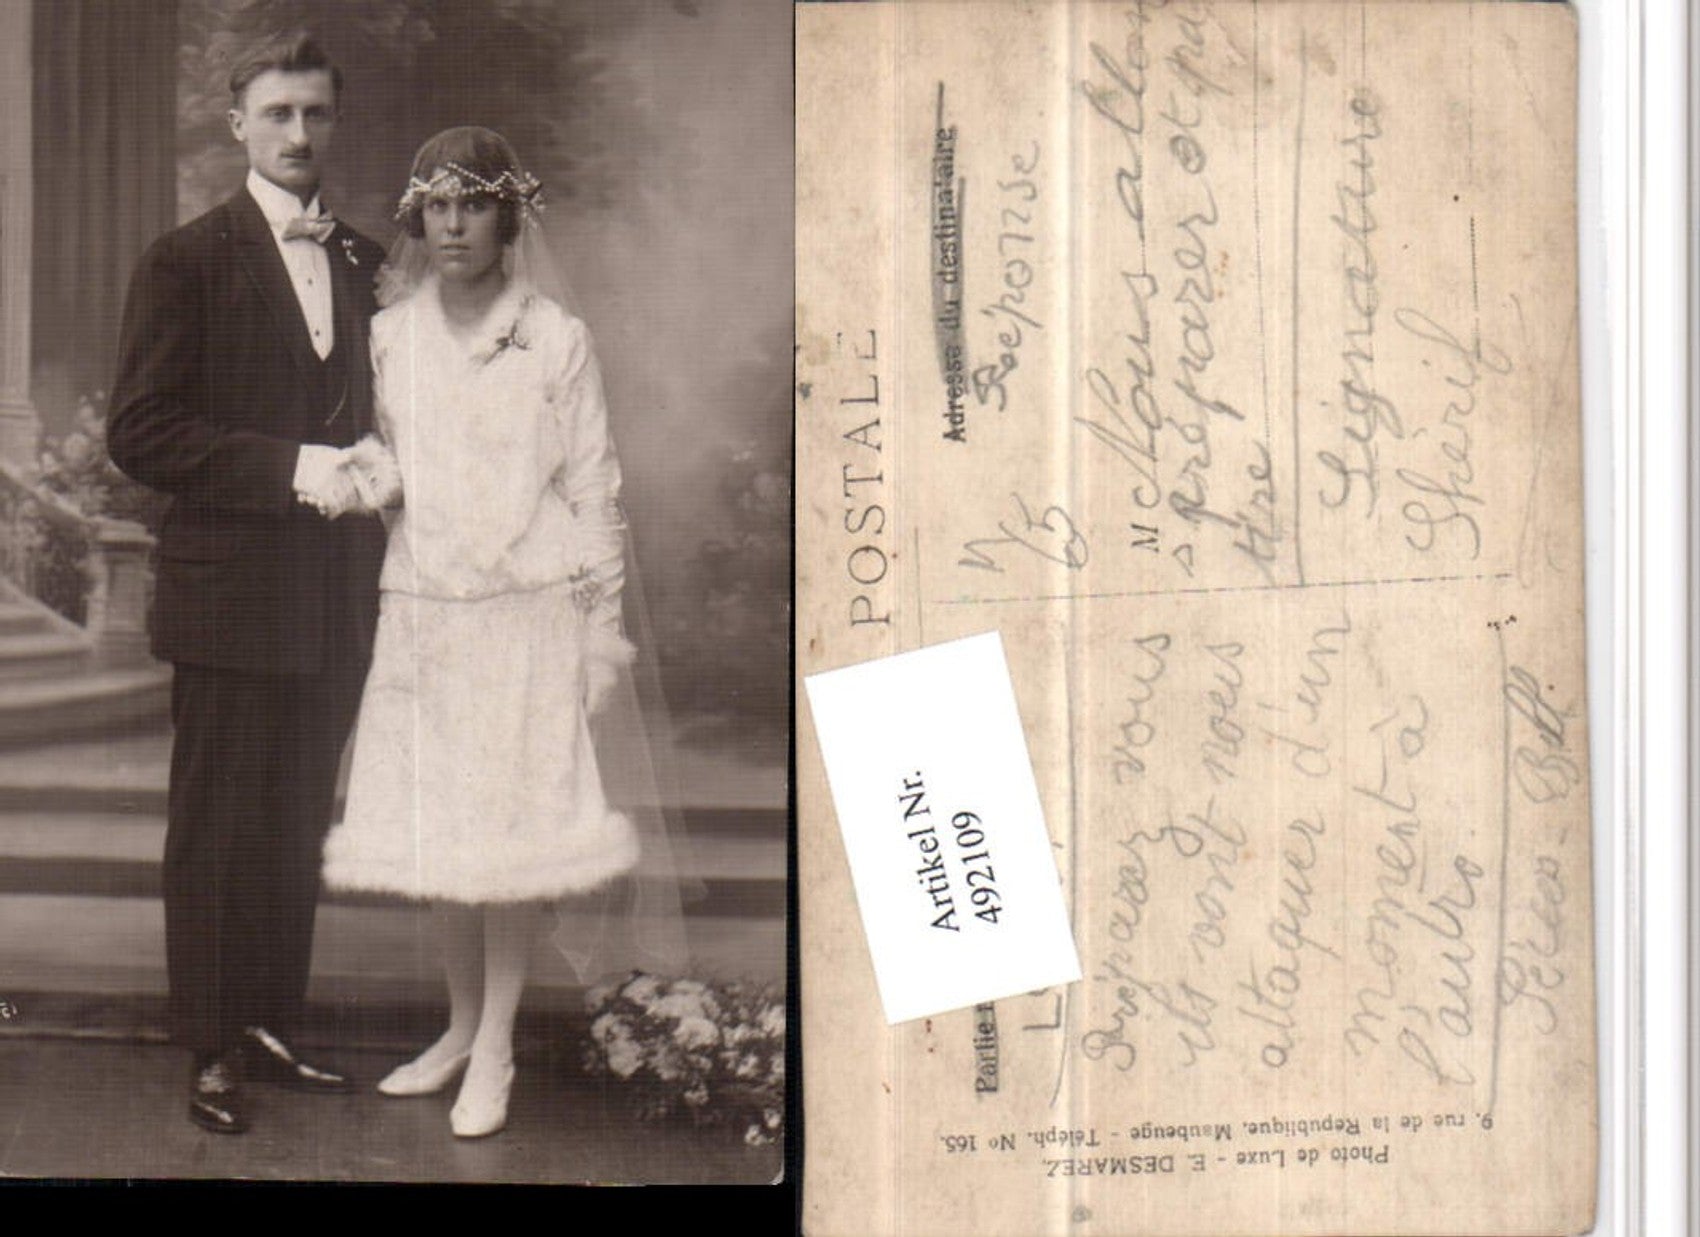 POSTALE
Adresse du destinataire
Réponse
N 5
M Nous
préparer et
être
Signature
Shérif
Artikel Nr.
492109
Partie
Préparez vous
ils vont nous
attaquer d'un
moment à
l'autre
Photo de Luxe - E. DESMAREZ,
9, rue de la République, Maubeuge - Téléph. No 165.